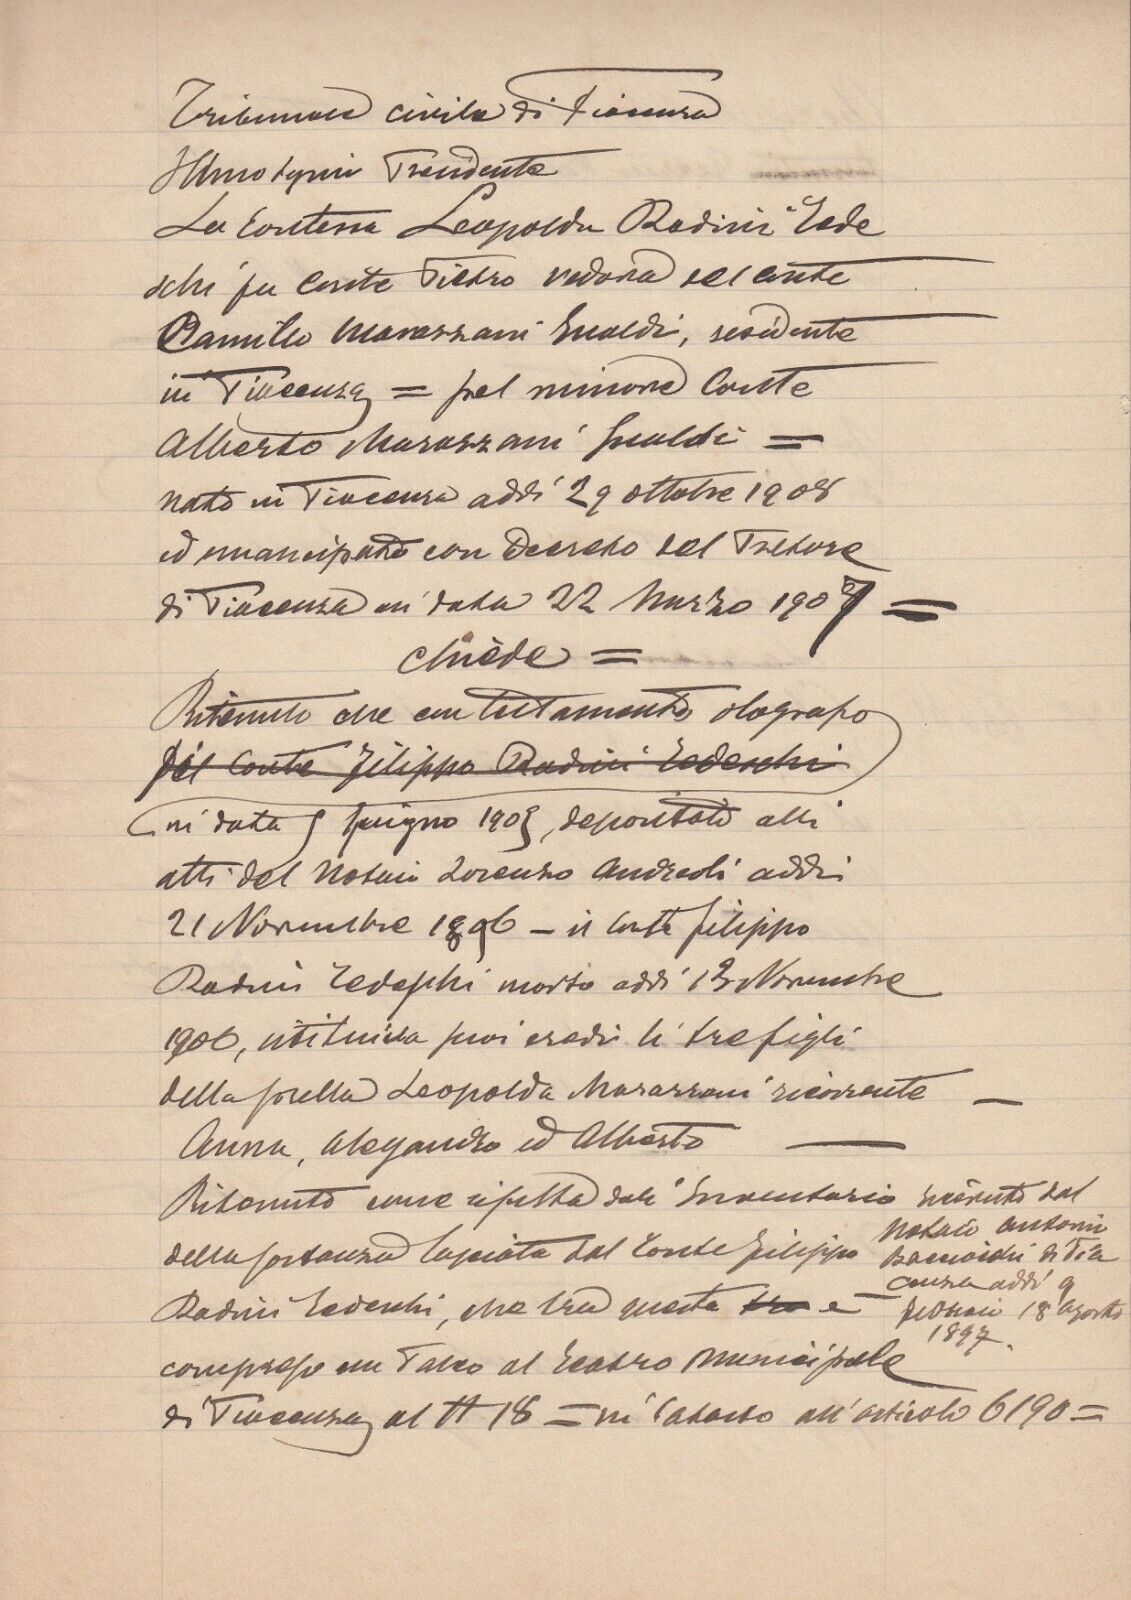 Tribunale civile di Piacenza
Illmo Sigrir Presidente
La Contessa Leopolda Radini Tede
schi fu Conte Pietro vedova del Conte
Camillo Marazzani Gualdi, residente
in Piacenza = pel minore Conte
Alberto Marazzani Gualdi =
nato in Piacenza addì 29 ottobre 1908
ed emancipato con Decreto del Pretore
di Piacenza in data 22 Marzo 1907 =
chiede =
Ritenuto che con testamento olografo
del Conte Filippo Radini Tedeschi
in data 5 giugno 1905, depositato alli
atti del Notaio Lorenzo Andreoli addì
21 Novembre 1896 – il Conte Filippo
Radini Tedeschi morto addì 13 Novembre
1906, istituiva suoi eredi li tre figli
della sorella Leopolda Marazzani ricorrente –
Anna, Alessandro ed Alberto
Ritenuto come risulta dall' Inventario ricevuto dal
Notaio Antonio
della sostanza lasciata dal Conte Filippo
di Pia
cenza addì 9
Radini Tedeschi, che tra questa tra e
Febbraio 18 agosto
1897.
compreso un Palco al Teatro Municipale
di Piacenza al N 18 = in Catasto all'articolo 6190 =